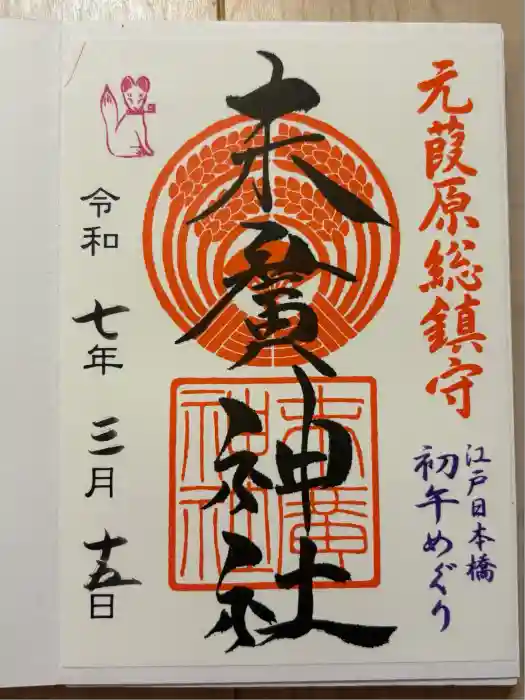 元葭原総鎮守
江戸日本橋
初午めぐり
末廣神社
末廣
神社
令和七年三月十五日